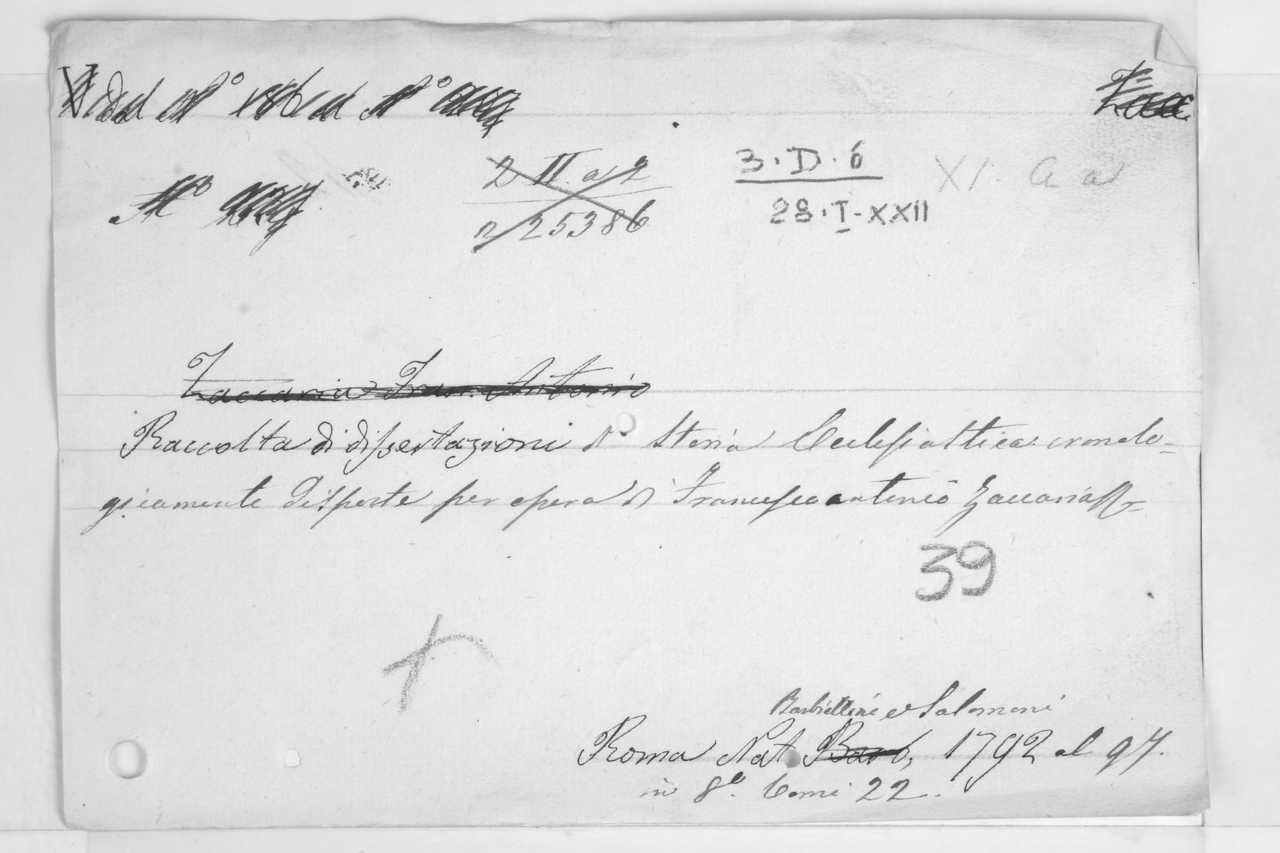 dal N.° 186 al N.°
N.°
2 II a 2
n 25386
3. D. 6
28. I - XXII
XI. A a
Zaccaria Fran. Antonio
Raccolta di dissertazioni di Storia Ecclesiastica cronolo=
gicamente disposte per opera di Francescoantonio Zaccaria
39
Barbiellini e Salomoni
Roma Nat Barb, 1792 al 97.
in 8.° Tomi 22.